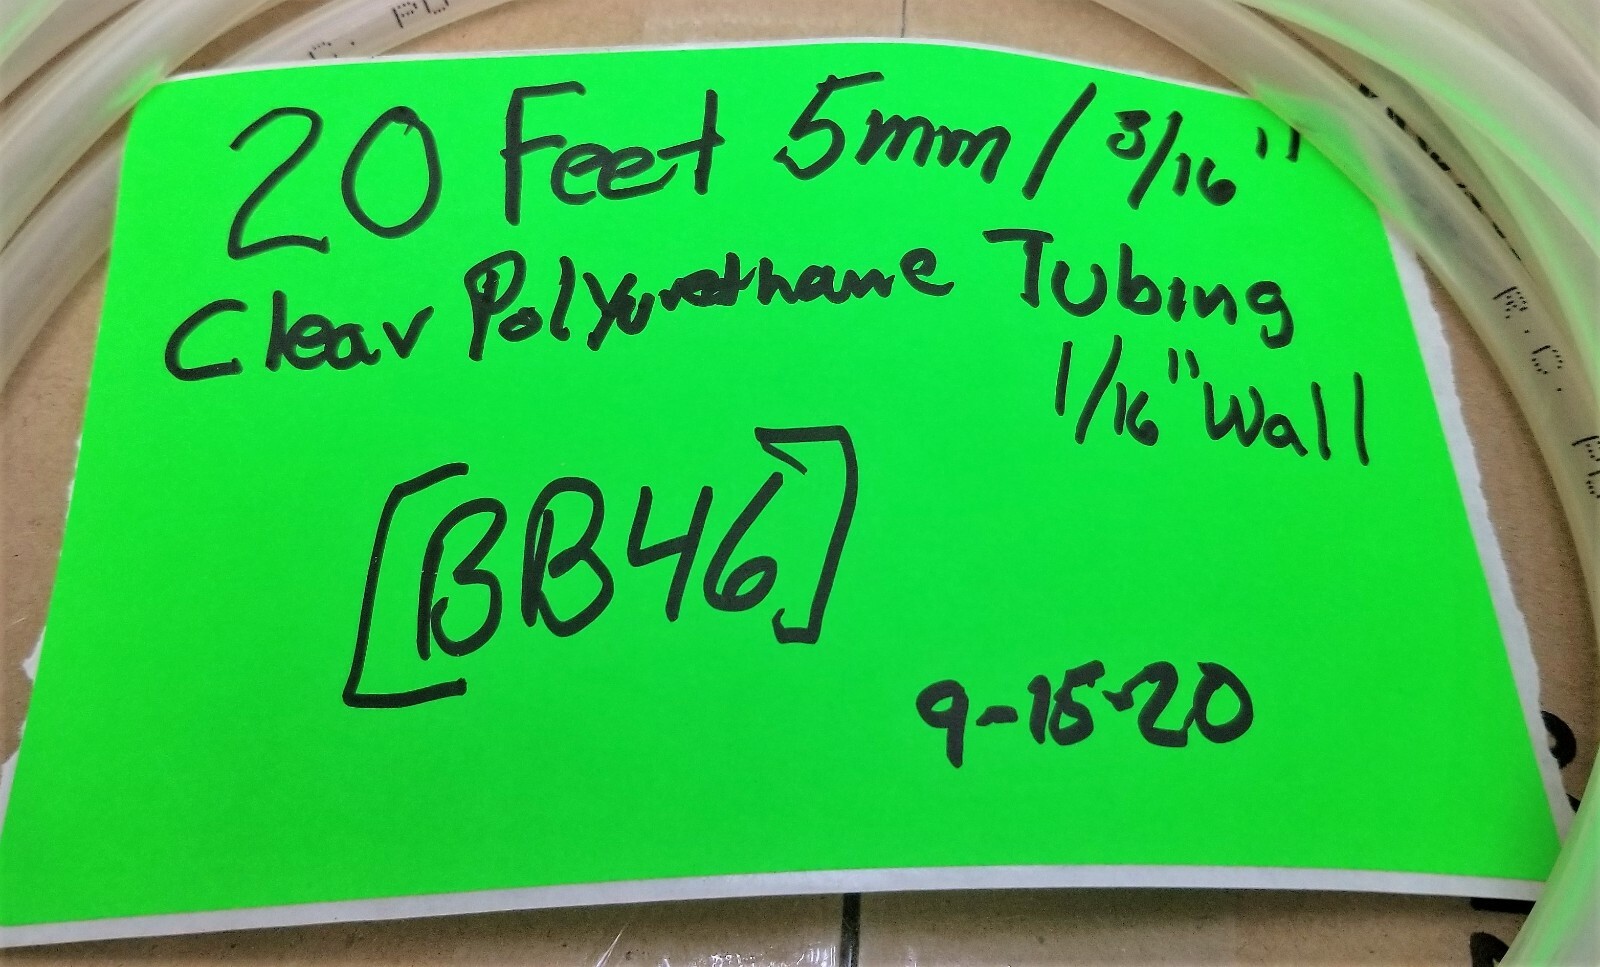 20 Feet 5mm / 3/16"
Clear Polyurethane Tubing
1/16" Wall
[BB46]
9-15-20
R.C.
PU